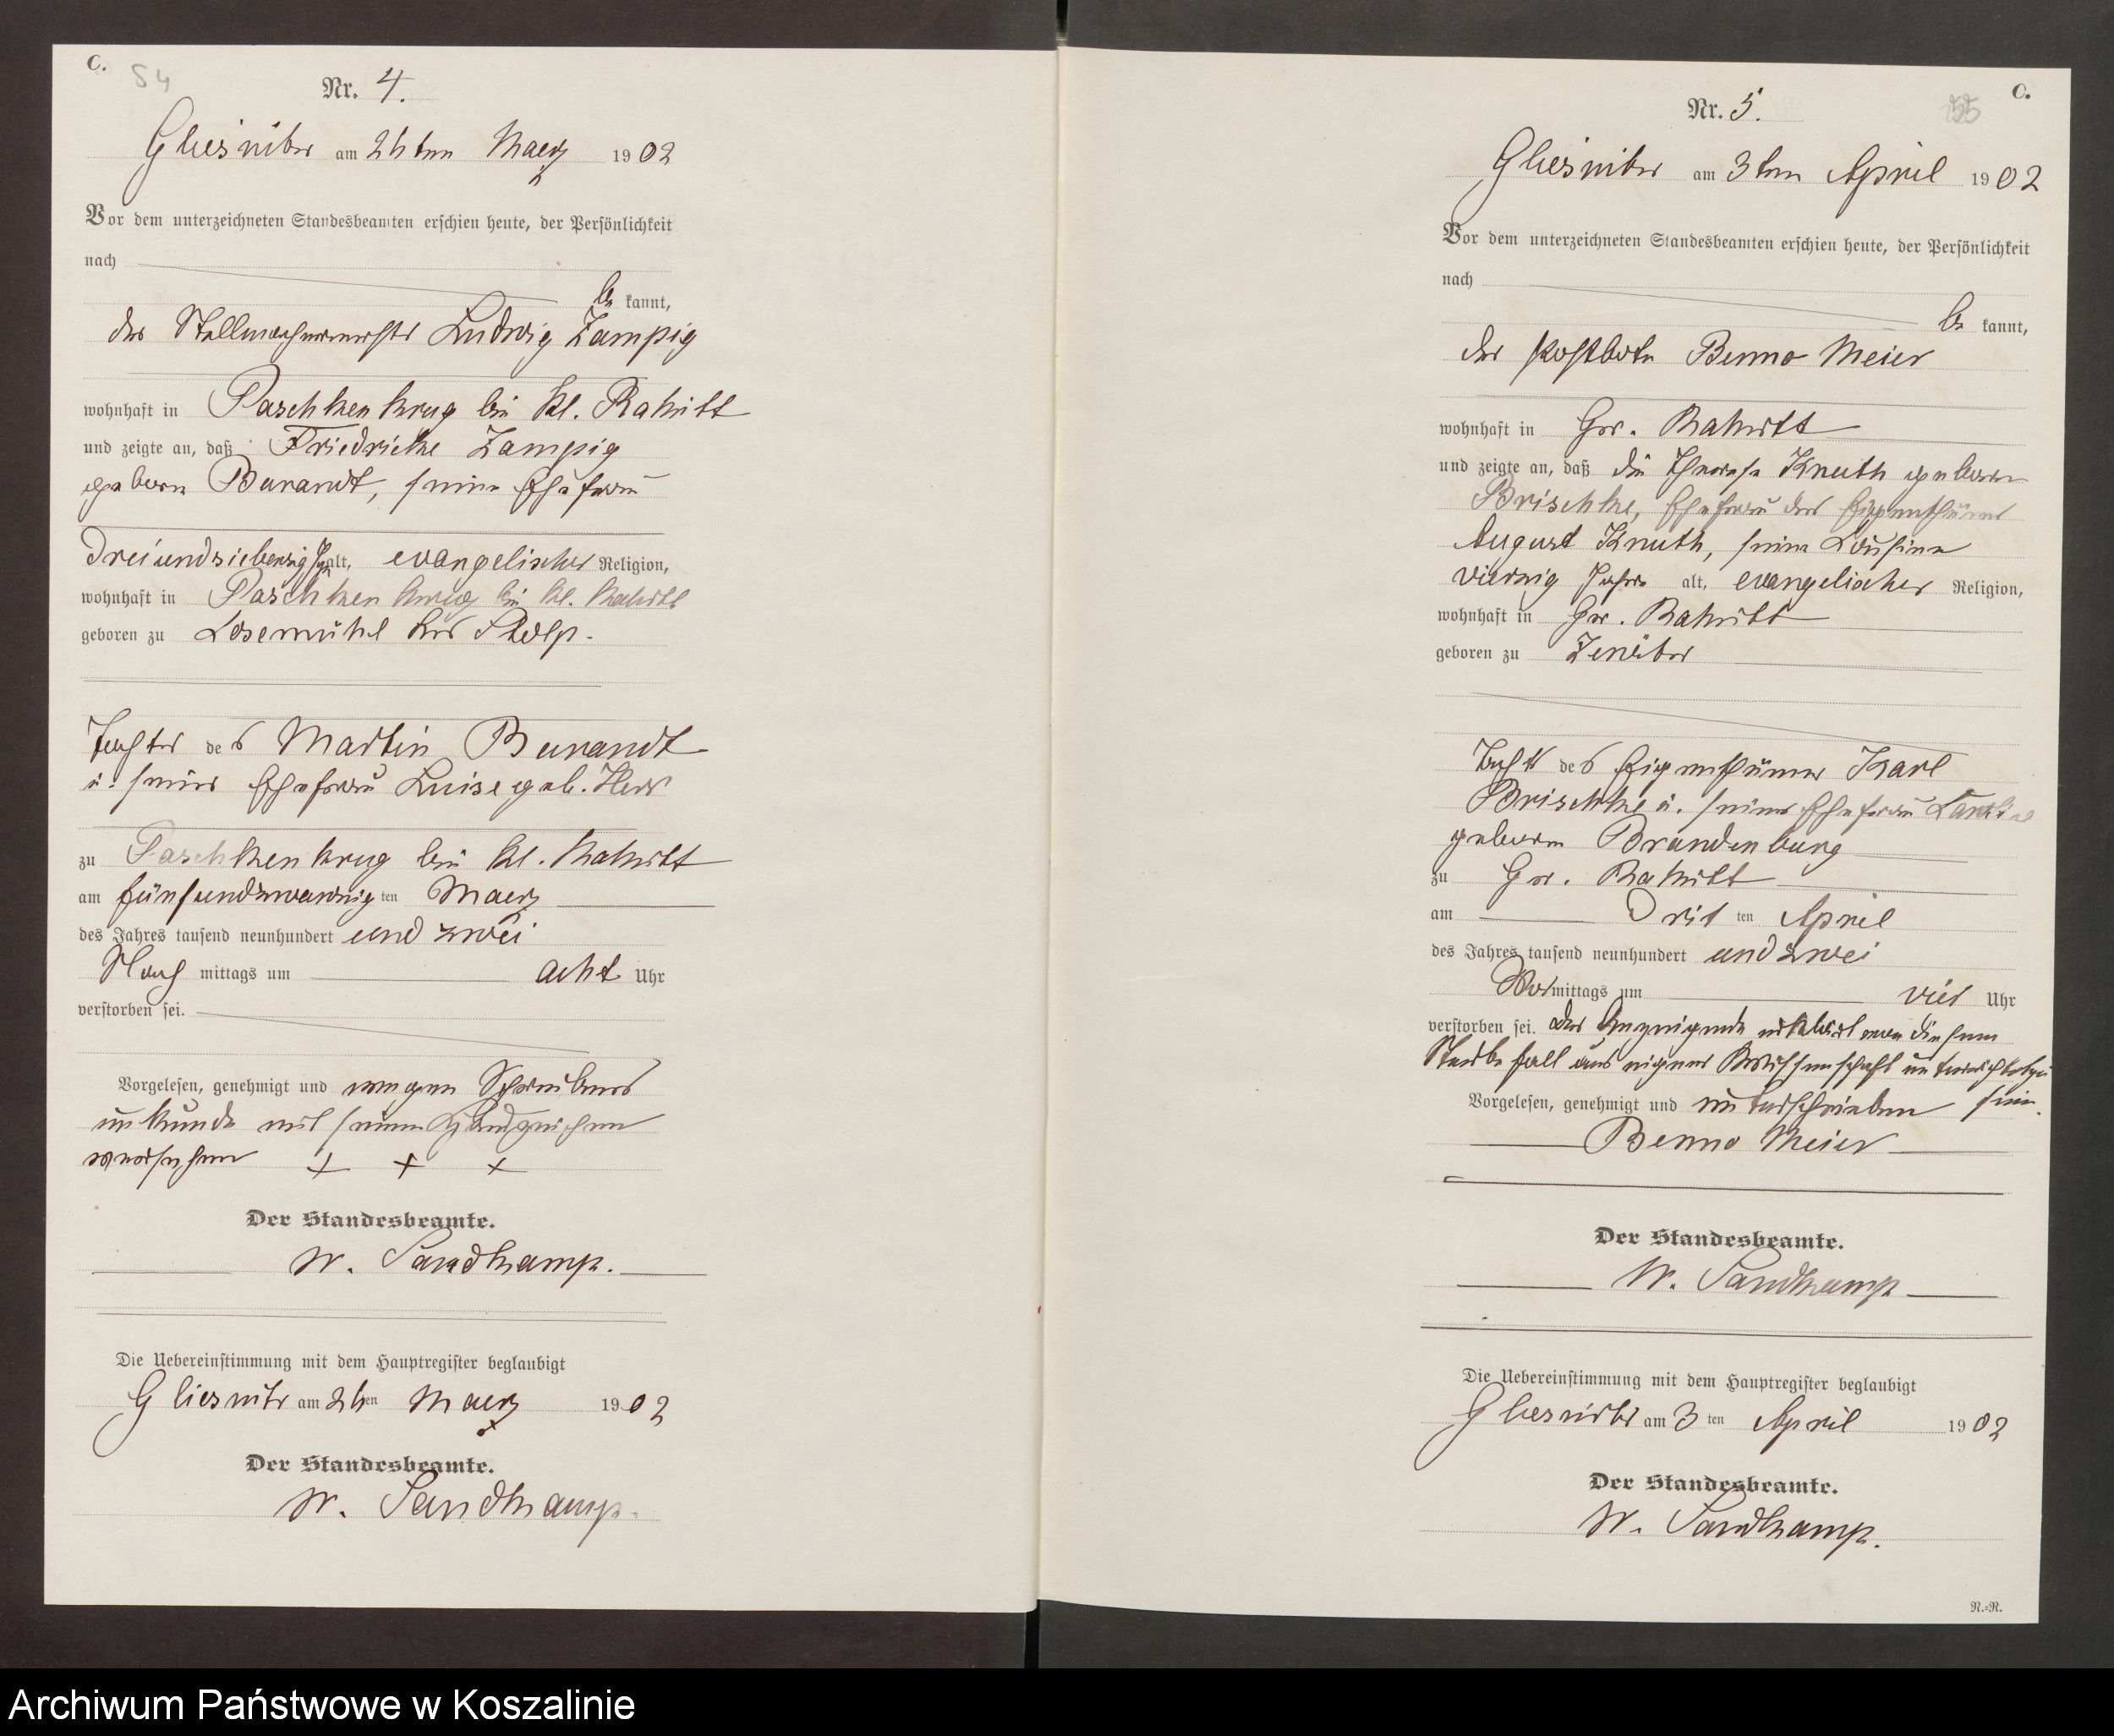 C.
54
Nr. 4.
Gliesnitz am 26ten Maerz 1902
Vor dem unterzeichneten Standesbeamten erschien heute, der Persönlichkeit
nach
be kannt,
der Stellmachermeister Ludwig Zampig
wohnhaft in Paschkenkrug bei Kl. Rakitt
und zeigte an, daß Friedricke Zampig
geborne Burandt, seine Ehefrau
dreiundsiebenzig Jahre alt, evangelischer Religion,
wohnhaft in Paschkenkrug bei Kl. Rakitt
geboren zu Losemühl Krs Stolp.
Tochter des Martin Burandt
u. seiner Ehefrau Luise geb.
zu Paschkenkrug bei Kl. Rakitt
am fünfundzwanzig ten Maerz
des Jahres tausend neunhundert und zwei
Nach mittags um acht Uhr
verstorben sei.
Vorgelesen, genehmigt und wegen Schreibens
unkunde mit seinem Handzeichen
versehen + + +
Der Standesbeamte.
W. Sandkamp.
Die Uebereinstimmung mit dem Hauptregister beglaubigt
Gliesnitz am 26ten Maerz 1902
Der Standesbeamte.
W. Sandkamp.
C.
55
Nr. 5.
Gliesnitz am 3ten April 1902
Vor dem unterzeichneten Standesbeamten erschien heute, der Persönlichkeit
nach
be kannt,
der Postbote Benno Meier
wohnhaft in Gr. Rakitt
und zeigte an, daß die Therese Knuth geborne
Brischke, Ehefrau des Eigenthümers
August Knuth, seine Cousine
vierzig Jahre alt, evangelischer Religion,
wohnhaft in Gr. Rakitt
geboren zu
Tocht des Eigenthümer Karl
Brischke u. seiner Ehefrau
geborne Brandenburg
zu Gr. Rakitt
am Drit ten April
des Jahres tausend neunhundert und zwei
Vor mittags um vier Uhr
verstorben sei. Der Anzeigende erklärt von diesem
Sterbefall aus eigener Wissenschaft unterrichtet zu
Vorgelesen, genehmigt und unterschrieben sein.
Benno Meier
Der Standesbeamte.
W. Sandkamp
Die Uebereinstimmung mit dem Hauptregister beglaubigt
Gliesnitz am 3 ten April 1902
Der Standesbeamte.
W. Sandkamp.
R.=R.
Archiwum Państwowe w Koszalinie